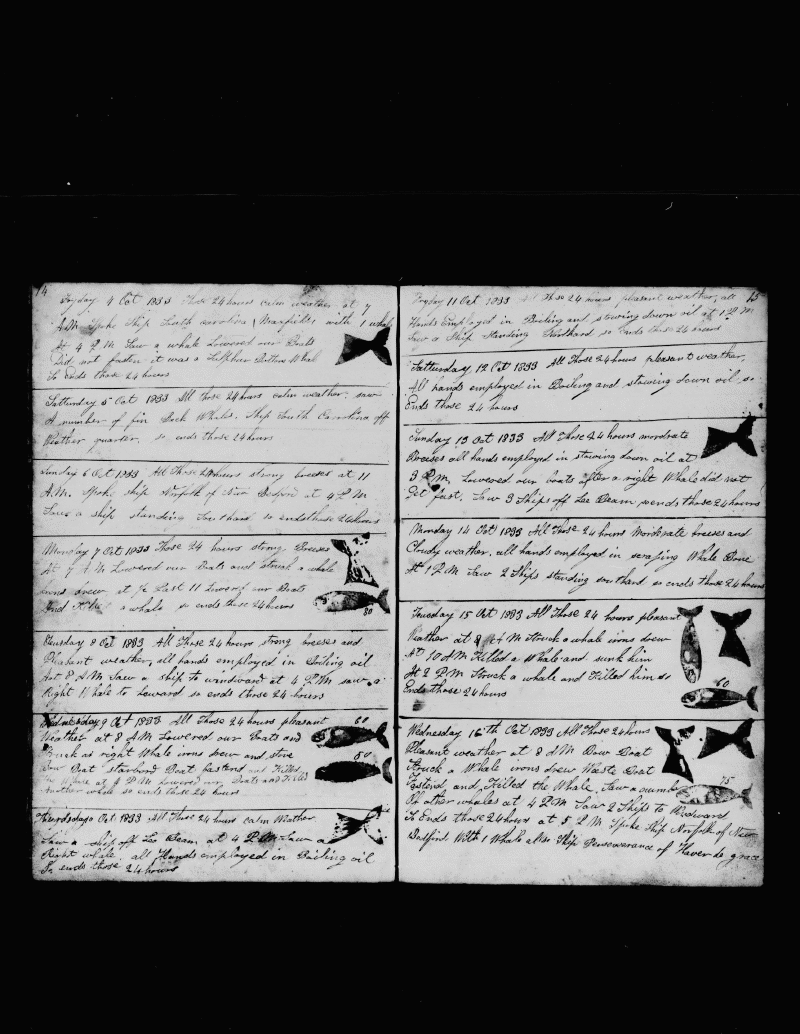 14
Fryday 4 Oct 1833 Those 24 hours calm weather at 7
A.M. Spoke Ship South carolina (Maxfield) with 1 whale
At 4 P M Saw a whale Lowered our Boats
Did not fasten it was a Sulphur Bottom Whal
So Ends those 24 hours
Satturday 5 Oct 1833 All those 24 hours calm weather saw
A number of fin Back Whales. Ship South Carolina off
Weather quarter, so ends those 24 hours
Sunday 6 Oct 1833 All Those 24 hours strong breeses at 11
A.M. Spoke ship Norfolk of New Bedford at 4 P.M
Saw a ship standing Southard so ends those 24 hours
Monday 7 Oct 1833 Those 24 hours strong Breeses
At 7 A M Lowered our Boats and struck a whale
Irons drew at Past 11 Lowered our Boats
And Killed a whale so ends those 24 hours
80
Thursday 8 Oct 1833 All Those 24 hours strong breeses and
Pleasant weather, all hands employed in Boiling oil
At 8 A.M Saw a ship to windward at 4 P.M saw a
Right Whale to Leward so ends those 24 hours
Wednesday 9 Oct 1833 All Those 24 hours pleasant
60
Weather at 8 A M Lowered our Boats and
Struck a right Whale irons drew and stove
80
Bow Boat starbord Boat fastend and Killed
The Whale at P M Lowered our Boats and Killed
Another whale so ends those 24 hours
10 Oct 1833 All Those 24 hours calm Weather
Saw a ship off Lee Beam at 4 P.M Saw a
Right whale, all Hands employed in Boiling oil
So ends those 24 hours
15
Fryday 11 Oct 1833 All Those 24 hours pleasant weather, all
Hands Employed in Boiling and stowing down oil at 1 P M
Saw a Ship Standing Southard so Ends those 24 hours
Satturday 12 Oct 1833 All Those 24 hours pleasant weather,
All hands employed in Boiling and stowing down oil, so
Ends those 24 hours
Sunday 13 Oct 1833 All Those 24 hours mordrate
Breeses all hands employed in stowing down oil at
3 P.M, Lowered our boats after a right Whale did not
Get fast, Saw 3 Ships off Lee Beam, so ends those 24 hours
Monday 14 Oct 1833 All Those 24 hours Morderate breeses and
Cloudy weather, all hands employed in scraping Whale Bone
At 1 P.M Saw 2 Ships standing southard so ends those 24 hours
Tuesday 15 Oct 1833 All Those 24 hours pleasant
Weather at 8 A M Struck a whale irons drew
At 10 A M Killed a Whale and sunk him
At 2 P M Struck a whale and Killed him so
60
Ends those 24 hours
Wednesday 16th Oct 1833 All Those 24 hours
Pleasant weather at 8 A M Bow Boat
Struck a Whale irons drew Waste Boat
Fastend and Killed the Whale, Saw a numb
75
Of other whales at 4 P M Saw 2 Ships to Windward
So Ends those 24 hours at 5 P M Spoke Ship Norfolk of New
Bedford With 1 Whale also Ship Perseverance of Haver de grace